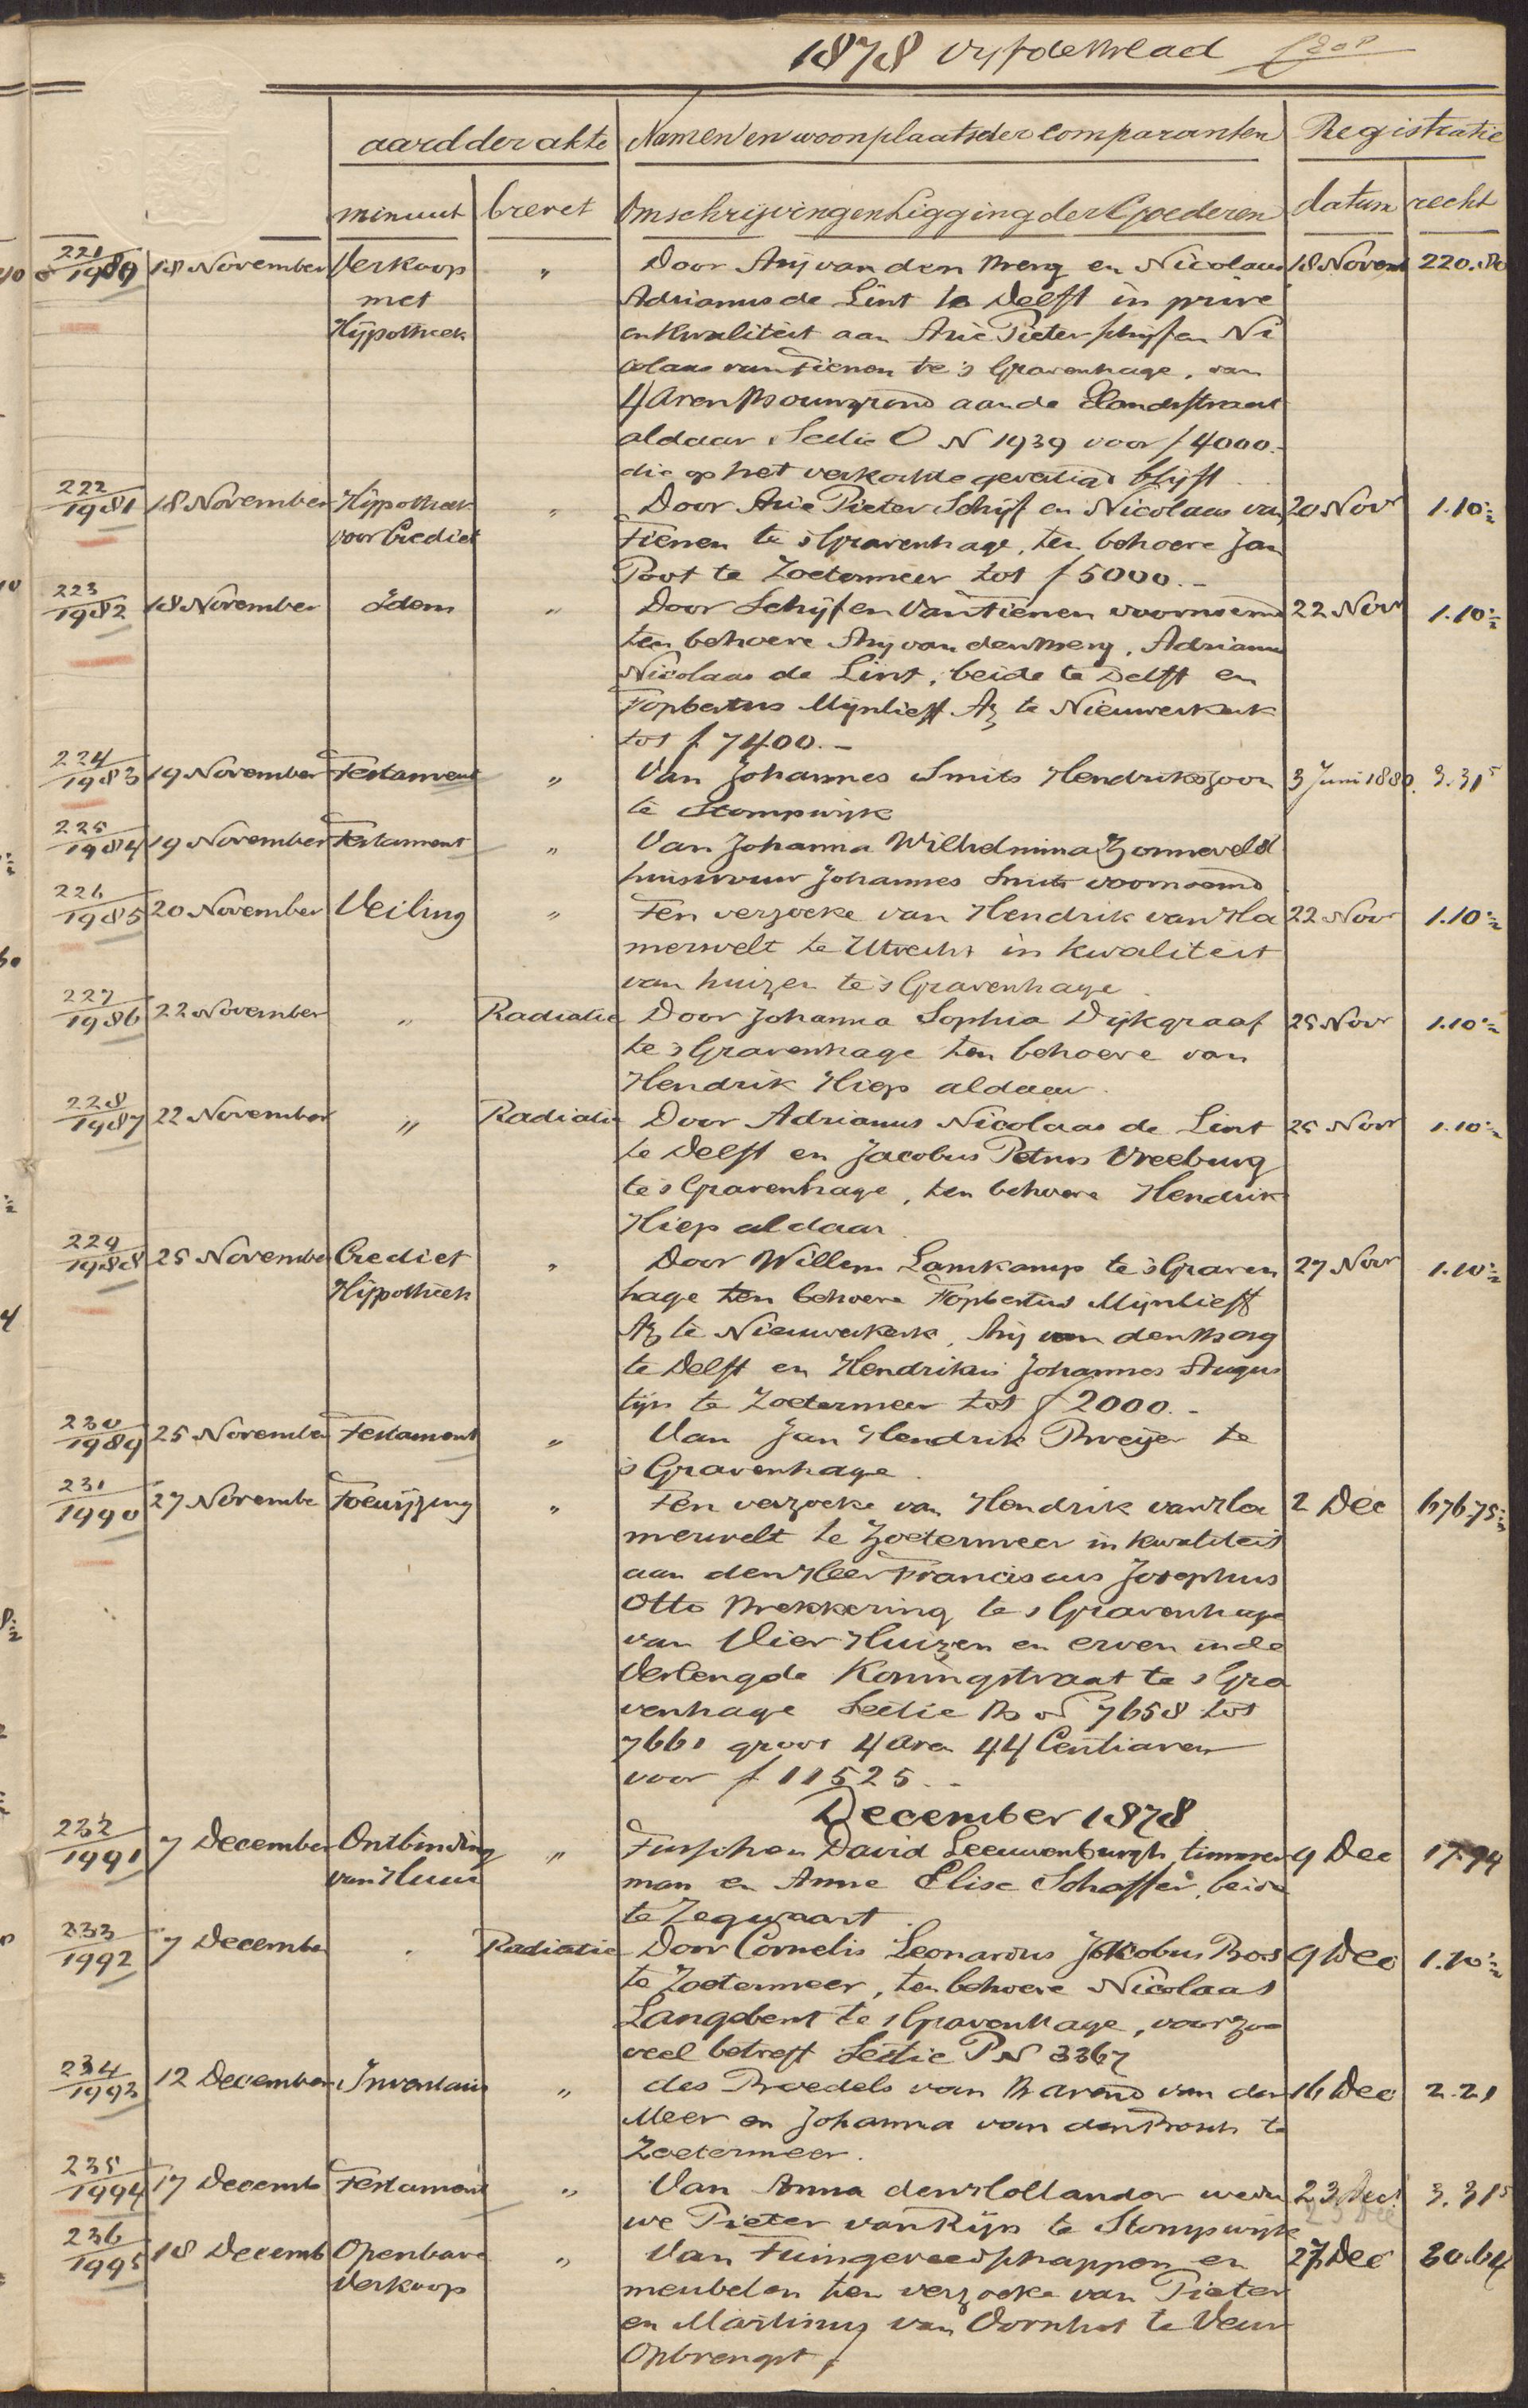 1878 Vijfde Blad
aard der akte Namen en woonplaats der Comparanten Registratie
minuut brevet Omschrijving en Ligging der Goederen datum recht
221/1980 18 November Verkoop „ Door Arij van den Berg en Nicolaas 18 Novemb 220.80
met Adrianus de Lint te Delft in privé
Hypotheek en kwaliteit aan Arie Pieter Schijf en Ni
colaas van Tienen te 's Gravenhage, van
4 Aren Bouwgrond aan de Elandstraat
aldaar Sectie O N 1939 voor f 4000.-
die op het verkochte gevestigd blijft
222/1981 18 November Hypotheek „ Door Arie Pieter Schijf en Nicolaas van 20 Nov 1.10½
voor Crediet Tienen te 's Gravenhage, ten behoeve Jan
Poot te Zoetermeer tot f 5000.-
223/1982 18 November Idem „ Door Schijf en Van Tienen voornoemd 22 Nov 1.10½
ten behoeve Arij van den Berg, Adrianus
Nicolaas de Lint, beide te Delft en
Fopbertus Mijnlieff Az te Nieuwerkerk
tot f 7400.-
224/1983 19 November Testament „ Van Johannes Smits Hendrikszoon 3 Juni 1880. 3.31⁵
te Stompwijk
225/1984 19 November Testament „ Van Johanna Wilhelmina Zonneveld
huisvrouw Johannes Smits voornoemd
226/1985 20 November Veiling „ Ten verzoeke van Hendrik van Ha 22 Nov 1.10½
merwelt te Utrecht in kwaliteit
van huizen te 's Gravenhage.
227/1986 22 November „ Radiatie Door Johanna Sophia Dijkgraaf 25 Nov 1.10½
te 's Gravenhage ten behoeve van
Hendrik Hiep aldaar.
228/1987 22 November „ Radiatie Door Adrianus Nicolaas de Lint 25 Nov 1.10½
te Delft en Jacobus Petrus Vreeburg
te 's Gravenhage, ten behoeve Hendrik
Hiep aldaar.
229/1988 25 November Crediet „ Door Willem Lamkamp te 's Graven 27 Nov 1.10½
Hypotheek hage ten behoeve Fopbertus Mijnlieff
Az te Nieuwerkerk, Arij van den Berg
te Delft en Hendrikus Johannes Augus
tijn te Zoetermeer tot f 2000.-
230/1989 25 November Testament „ Van Jan Hendrik Breijer te
's Gravenhage.
231/1990 27 Novembe Toewijzing „ Ten verzoeke van Hendrik van Ha 2 Dec 676.75½
merwelt te Zoetermeer in kwaliteit
aan den Heer Franciscus Josephus
Otto Brekkering te 's Gravenhage
van Vier Huizen en erven in de
Verlengde Koningstraat te 's Gra
venhage Sectie B N 7658 tot
7661 groot 4 Are 44 Centiaren
voor f 11525.-
December 1878
232/1991 7 December Ontbinding „ Tusschen David Leeuwenburgh timmer 9 Dec 17.94
van Huur man en Anne Elise Schaffer, beide
te Zegwaart.
233/1992 7 December „ Radiatie Door Cornelis Leonardus Jacobus Bos 9 Dec 1.10½
te Zoetermeer, ten behoeve Nicolaas
Langbent te 's Gravenhage, voor zoo
veel betreft Sectie P N 3367
234/1993 12 December Inventaris „ des Boedels van Barend van der 16 Dec 2.21
Meer en Johanna van den Bosch te
Zoetermeer.
235/1994 17 Decemb Testament „ Van Anna den Hollander wedu 23 Dec 3.31⁵
we Pieter van Rijn te Stompwijk
236/1995 18 Decemb Openbare „ Van Tuingereedschappen en 27 Dec 30.64
Verkoop meubelen ten verzoeke van Pieter
en Martinus van Oornhot te Veur
Opbrengst f